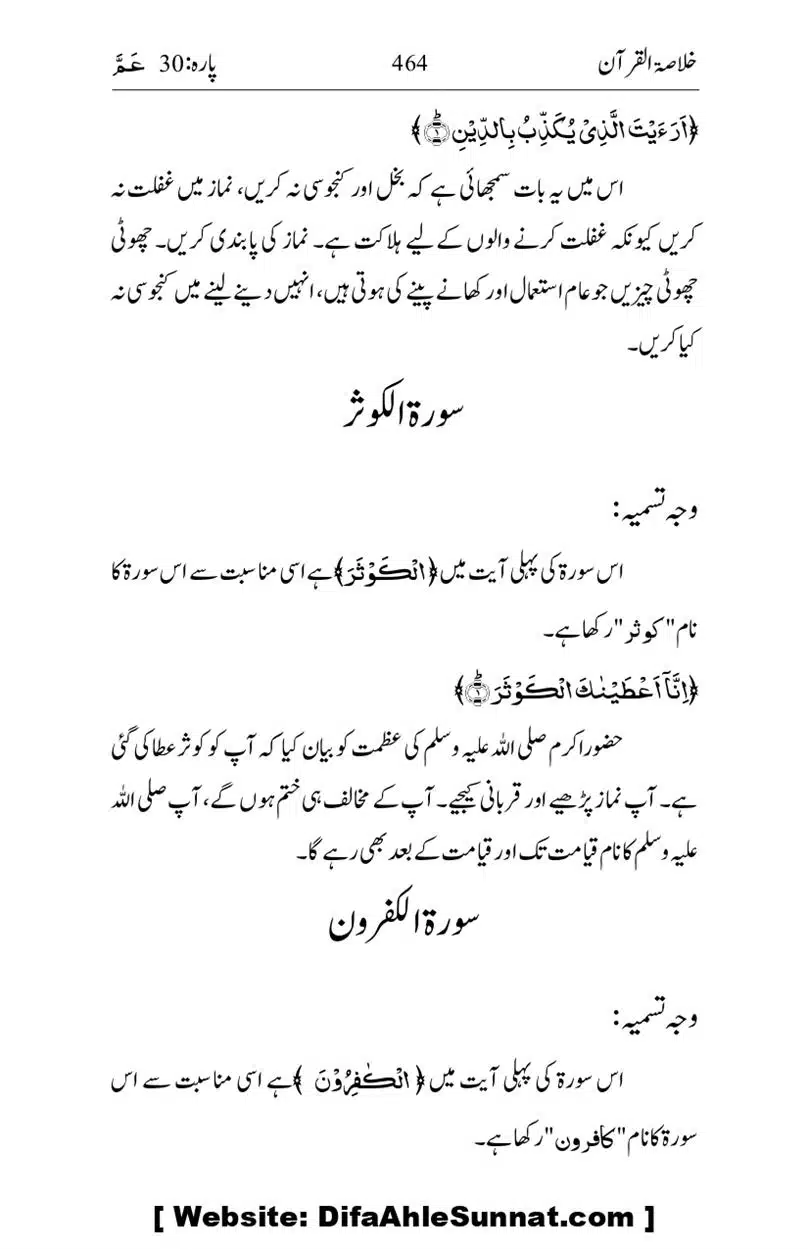 خلاصۃ القرآن 464 پارہ:30 عَمَّ
﴿اَرَءَیْتَ الَّذِیْ یُکَذِّبُ بِالدِّیْنِ ۱ؕ﴾
اس میں یہ بات سمجھائی ہے کہ بخل اور کنجوسی نہ کریں، نماز میں غفلت نہ
کریں کیونکہ غفلت کرنے والوں کے لیے ہلاکت ہے۔ نماز کی پابندی کریں۔ چھوٹی
چھوٹی چیزیں جو عام استعمال اور کھانے پینے کی ہوتی ہیں، انہیں دینے لینے میں کنجوسی نہ
کیا کریں۔
سورۃ الکوثر
وجہ تسمیہ:
اس سورۃ کی پہلی آیت میں ﴿الْکَوْثَرَ﴾ ہے اسی مناسبت سے اس سورۃ کا
نام "کوثر" رکھا ہے۔
﴿اِنَّاۤ اَعْطَیْنٰكَ الْکَوْثَرَ ۱ؕ﴾
حضور اکرم صلی اللہ علیہ وسلم کی عظمت کو بیان کیا کہ آپ کو کوثر عطا کی گئی
ہے۔ آپ نماز پڑھیے اور قربانی کیجیے۔ آپ کے مخالف ہی ختم ہوں گے، آپ صلی اللہ
علیہ وسلم کا نام قیامت تک اور قیامت کے بعد بھی رہے گا۔
سورۃ الکفرون
وجہ تسمیہ:
اس سورۃ کی پہلی آیت میں ﴿الْکٰفِرُوْنَ﴾ ہے اسی مناسبت سے اس
سورۃ کا نام "کافرون" رکھا ہے۔
[ Website: DifaAhleSunnat.com ]